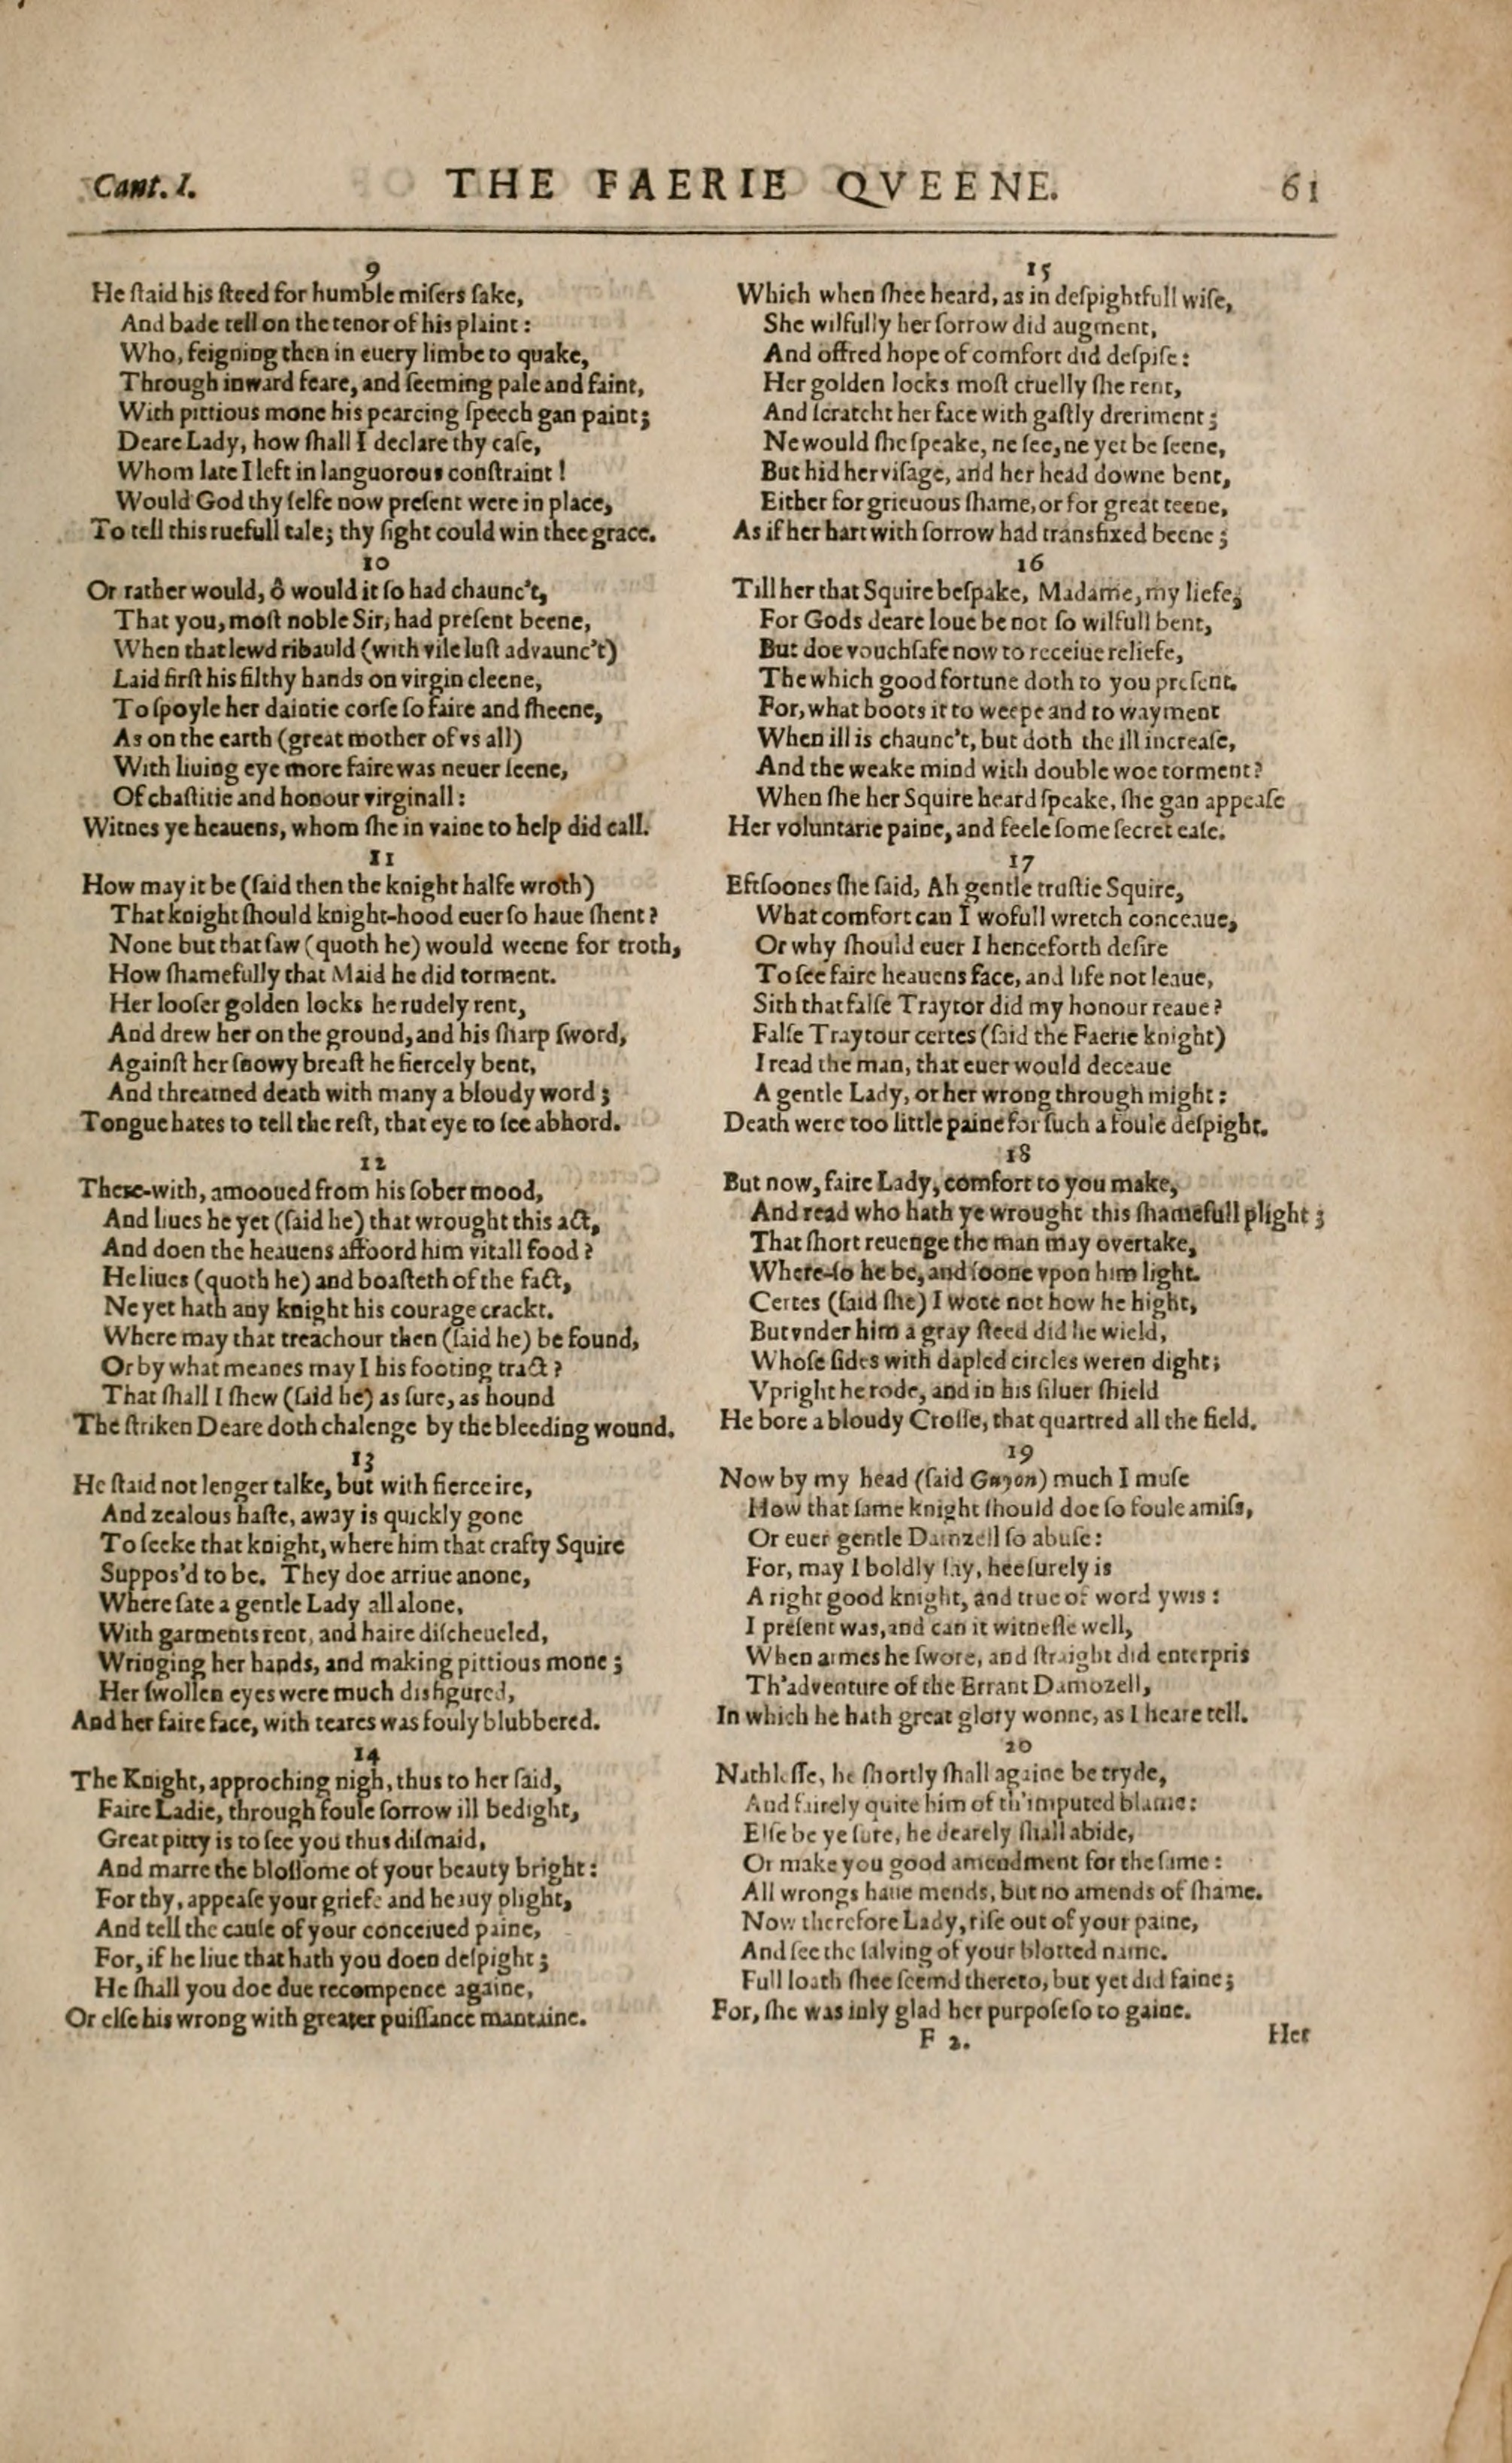 Cant. I. THE FAERIE QVEENE. 61
9
He ſtaid his ſteed for humble miſers ſake,
And bade tell on the tenor of his plaint:
Who, feigning then in euery limbe to quake,
Through inward feare, and ſeeming pale and faint,
With pittious mone his pearcing ſpeech gan paint;
Deare Lady, how ſhall I declare thy caſe,
Whom late I left in languorous conſtraint!
Would God thy ſelfe now preſent were in place,
To tell this ruefull tale; thy ſight could win thee grace.
10
Or rather would, ô would it ſo had chaunc't,
That you, moſt noble Sir, had preſent beene,
When that lewd ribauld (with vile luſt advaunc't)
Laid firſt his filthy hands on virgin cleene,
To ſpoyle her daintie corſe ſo faire and ſheene,
As on the earth (great mother of vs all)
With liuing eye more faire was neuer ſeene,
Of chaſtitie and honour virginall:
Witnes ye heauens, whom ſhe in vaine to help did call.
11
How may it be (ſaid then the knight halfe wroth)
That knight ſhould knight-hood euer ſo haue ſhent?
None but that ſaw (quoth he) would weene for troth,
How ſhamefully that Maid he did torment.
Her looſer golden locks he rudely rent,
And drew her on the ground, and his ſharp ſword,
Againſt her ſnowy breaſt he fiercely bent,
And threatned death with many a bloudy word;
Tongue hates to tell the reſt, that eye to ſee abhord.
12
There-with, amooued from his ſober mood,
And liues he yet (ſaid he) that wrought this act,
And doen the heauens affoord him vitall food?
He liues (quoth he) and boaſteth of the fact,
Ne yet hath any knight his courage crackt.
Where may that treachour then (ſaid he) be found,
Or by what meanes may I his footing tract?
That ſhall I ſhew (ſaid he) as ſure, as hound
The ſtriken Deare doth chalenge by the bleeding wound.
13
He ſtaid not lenger talke, but with fierce ire,
And zealous haſte, away is quickly gone
To ſeeke that knight, where him that crafty Squire
Suppos'd to be. They doe arriue anone,
Where ſate a gentle Lady all alone,
With garments rent, and haire diſcheueled,
Wringing her hands, and making pittious mone;
Her ſwollen eyes were much disfigured,
And her faire face, with teares was fouly blubbered.
14
The Knight, approching nigh, thus to her ſaid,
Faire Ladie, through foule ſorrow ill bedight,
Great pitty is to ſee you thus diſmaid,
And marre the bloſſome of your beauty bright:
For thy, appeaſe your griefe and heauy plight,
And tell the cauſe of your conceiued paine,
For, if he liue that hath you doen deſpight;
He ſhall you doe due recompence againe,
Or elſe his wrong with greater puiſſance mantaine.
15
Which when ſhee heard, as in deſpightfull wiſe,
She wilfully her ſorrow did augment,
And offred hope of comfort did deſpiſe:
Her golden locks moſt cruelly ſhe rent,
And ſcratcht her face with gaſtly dreriment;
Ne would ſhe ſpeake, ne ſee, ne yet be ſeene,
But hid her viſage, and her head downe bent,
Either for grieuous ſhame, or for great teene,
As if her hart with ſorrow had transfixed beene;
16
Till her that Squire beſpake, Madame, my liefe,
For Gods deare loue be not ſo wilfull bent,
But doe vouchſafe now to receiue reliefe,
The which good fortune doth to you preſent.
For, what boots it to weepe and to wayment
When ill is chaunc't, but doth the ill increaſe,
And the weake mind with double woe torment?
When ſhe her Squire heard ſpeake, ſhe gan appeaſe
Her voluntarie paine, and feele ſome ſecret eaſe.
17
Eftſoones ſhe ſaid, Ah gentle truſtie Squire,
What comfort can I wofull wretch conceaue,
Or why ſhould euer I henceforth deſire
To ſee faire heauens face, and life not leaue,
Sith that falſe Traytor did my honour reaue?
Falſe Traytour certes (ſaid the Faerie knight)
I read the man, that euer would deceaue
A gentle Lady, or her wrong through might:
Death were too little paine for ſuch a foule deſpight.
18
But now, faire Lady, comfort to you make,
And read who hath ye wrought this ſhamefull plight;
That ſhort reuenge the man may overtake,
Where-ſo he be, and ſoone vpon him light.
Certes (ſaid ſhe) I wote not how he hight,
But vnder him a gray ſteed did he wield,
Whoſe ſides with dapled circles weren dight;
Vpright he rode, and in his ſiluer ſhield
He bore a bloudy Croſſe, that quartred all the field.
19
Now by my head (ſaid Guyon) much I muſe
How that ſame knight ſhould doe ſo foule amiſs,
Or euer gentle Damzell ſo abuſe:
For, may I boldly ſay, hee ſurely is
A right good knight, and true of word ywis:
I preſent was, and can it witneſſe well,
When armes he ſwore, and ſtraight did enterpris
Th'adventure of the Errant Damozell,
In which he hath great glory wonne, as I heare tell.
20
Nathleſſe, he ſhortly ſhall againe be tryde,
And fairely quite him of th'imputed blame:
Elſe be ye ſure, he dearely ſhall abide,
Or make you good amendment for the ſame:
All wrongs haue mends, but no amends of ſhame.
Now therefore Lady, riſe out of your paine,
And ſee the ſalving of your blotted name.
Full loath ſhee ſeemd thereto, but yet did faine;
For, ſhe was inly glad her purpoſe ſo to gaine.
F 2. Her